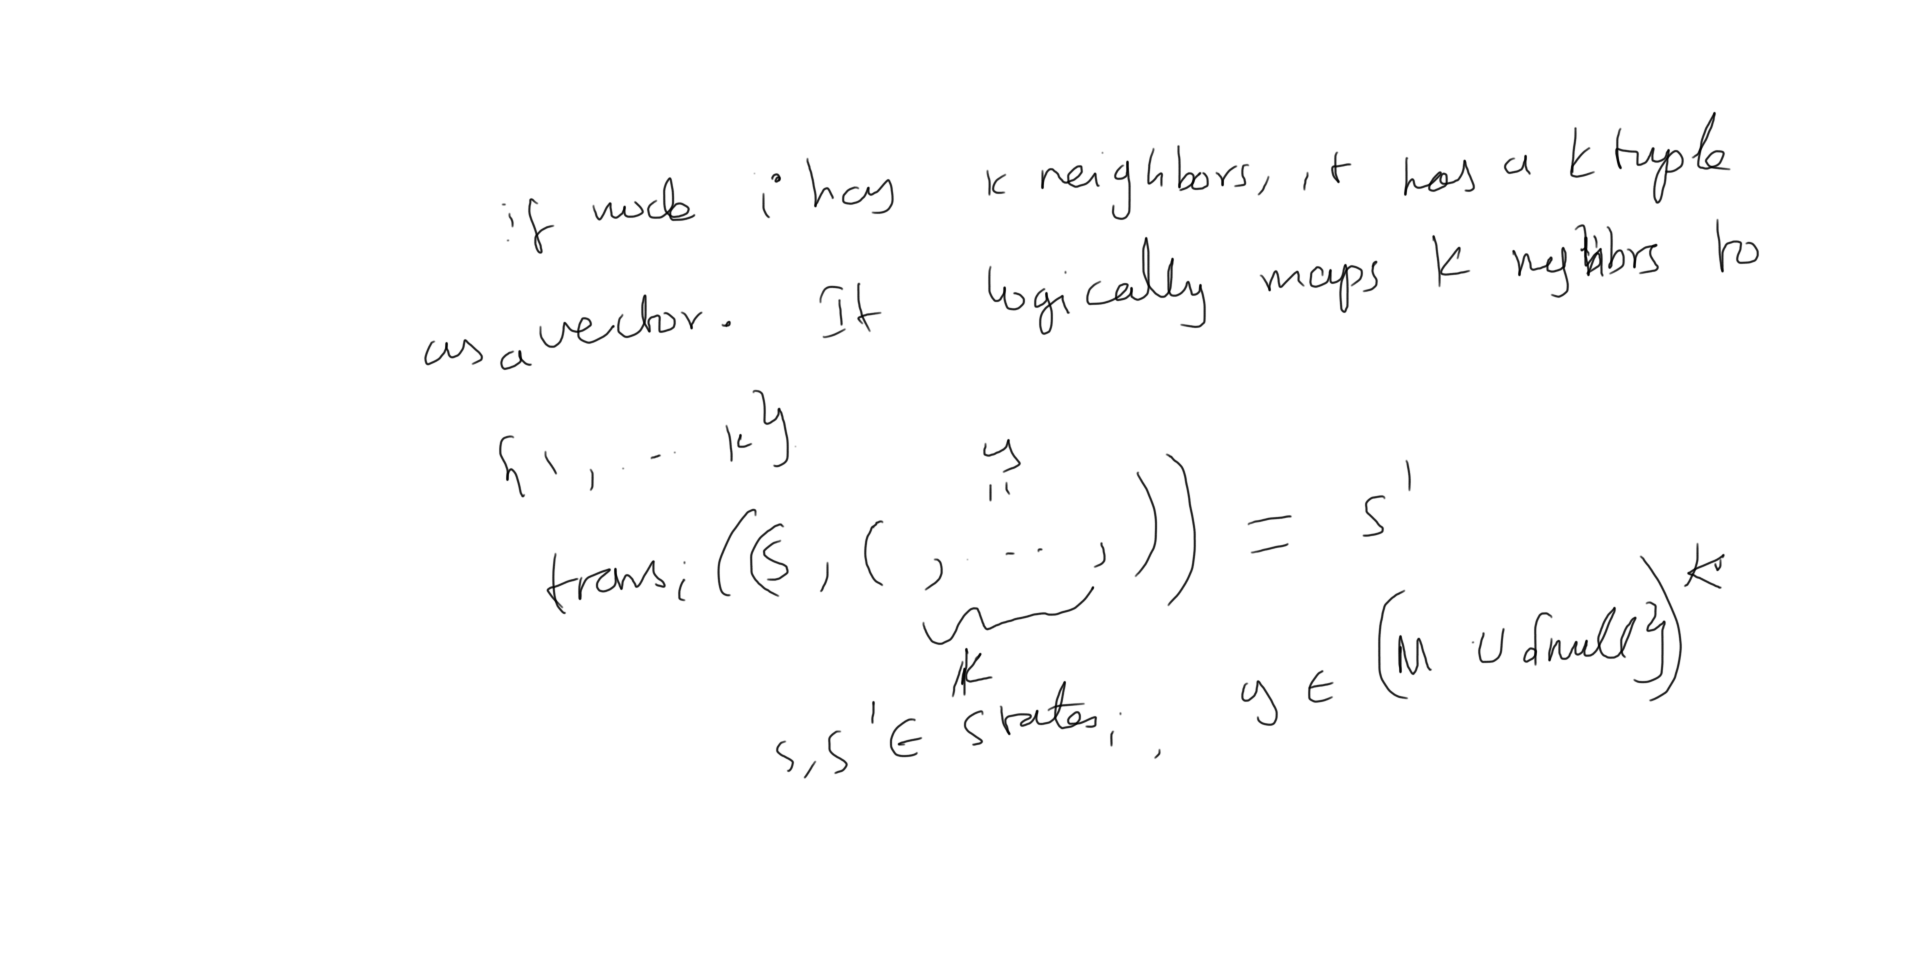 if node i has k neighbors, it has a k tuple
as a vector. It logically maps k neighbors to
{1, ... k}
y
=
trans_i((s, ( , ... , ))) = s'
k
s, s' ∈ states_i, y ∈ (M ∪ {null})^k